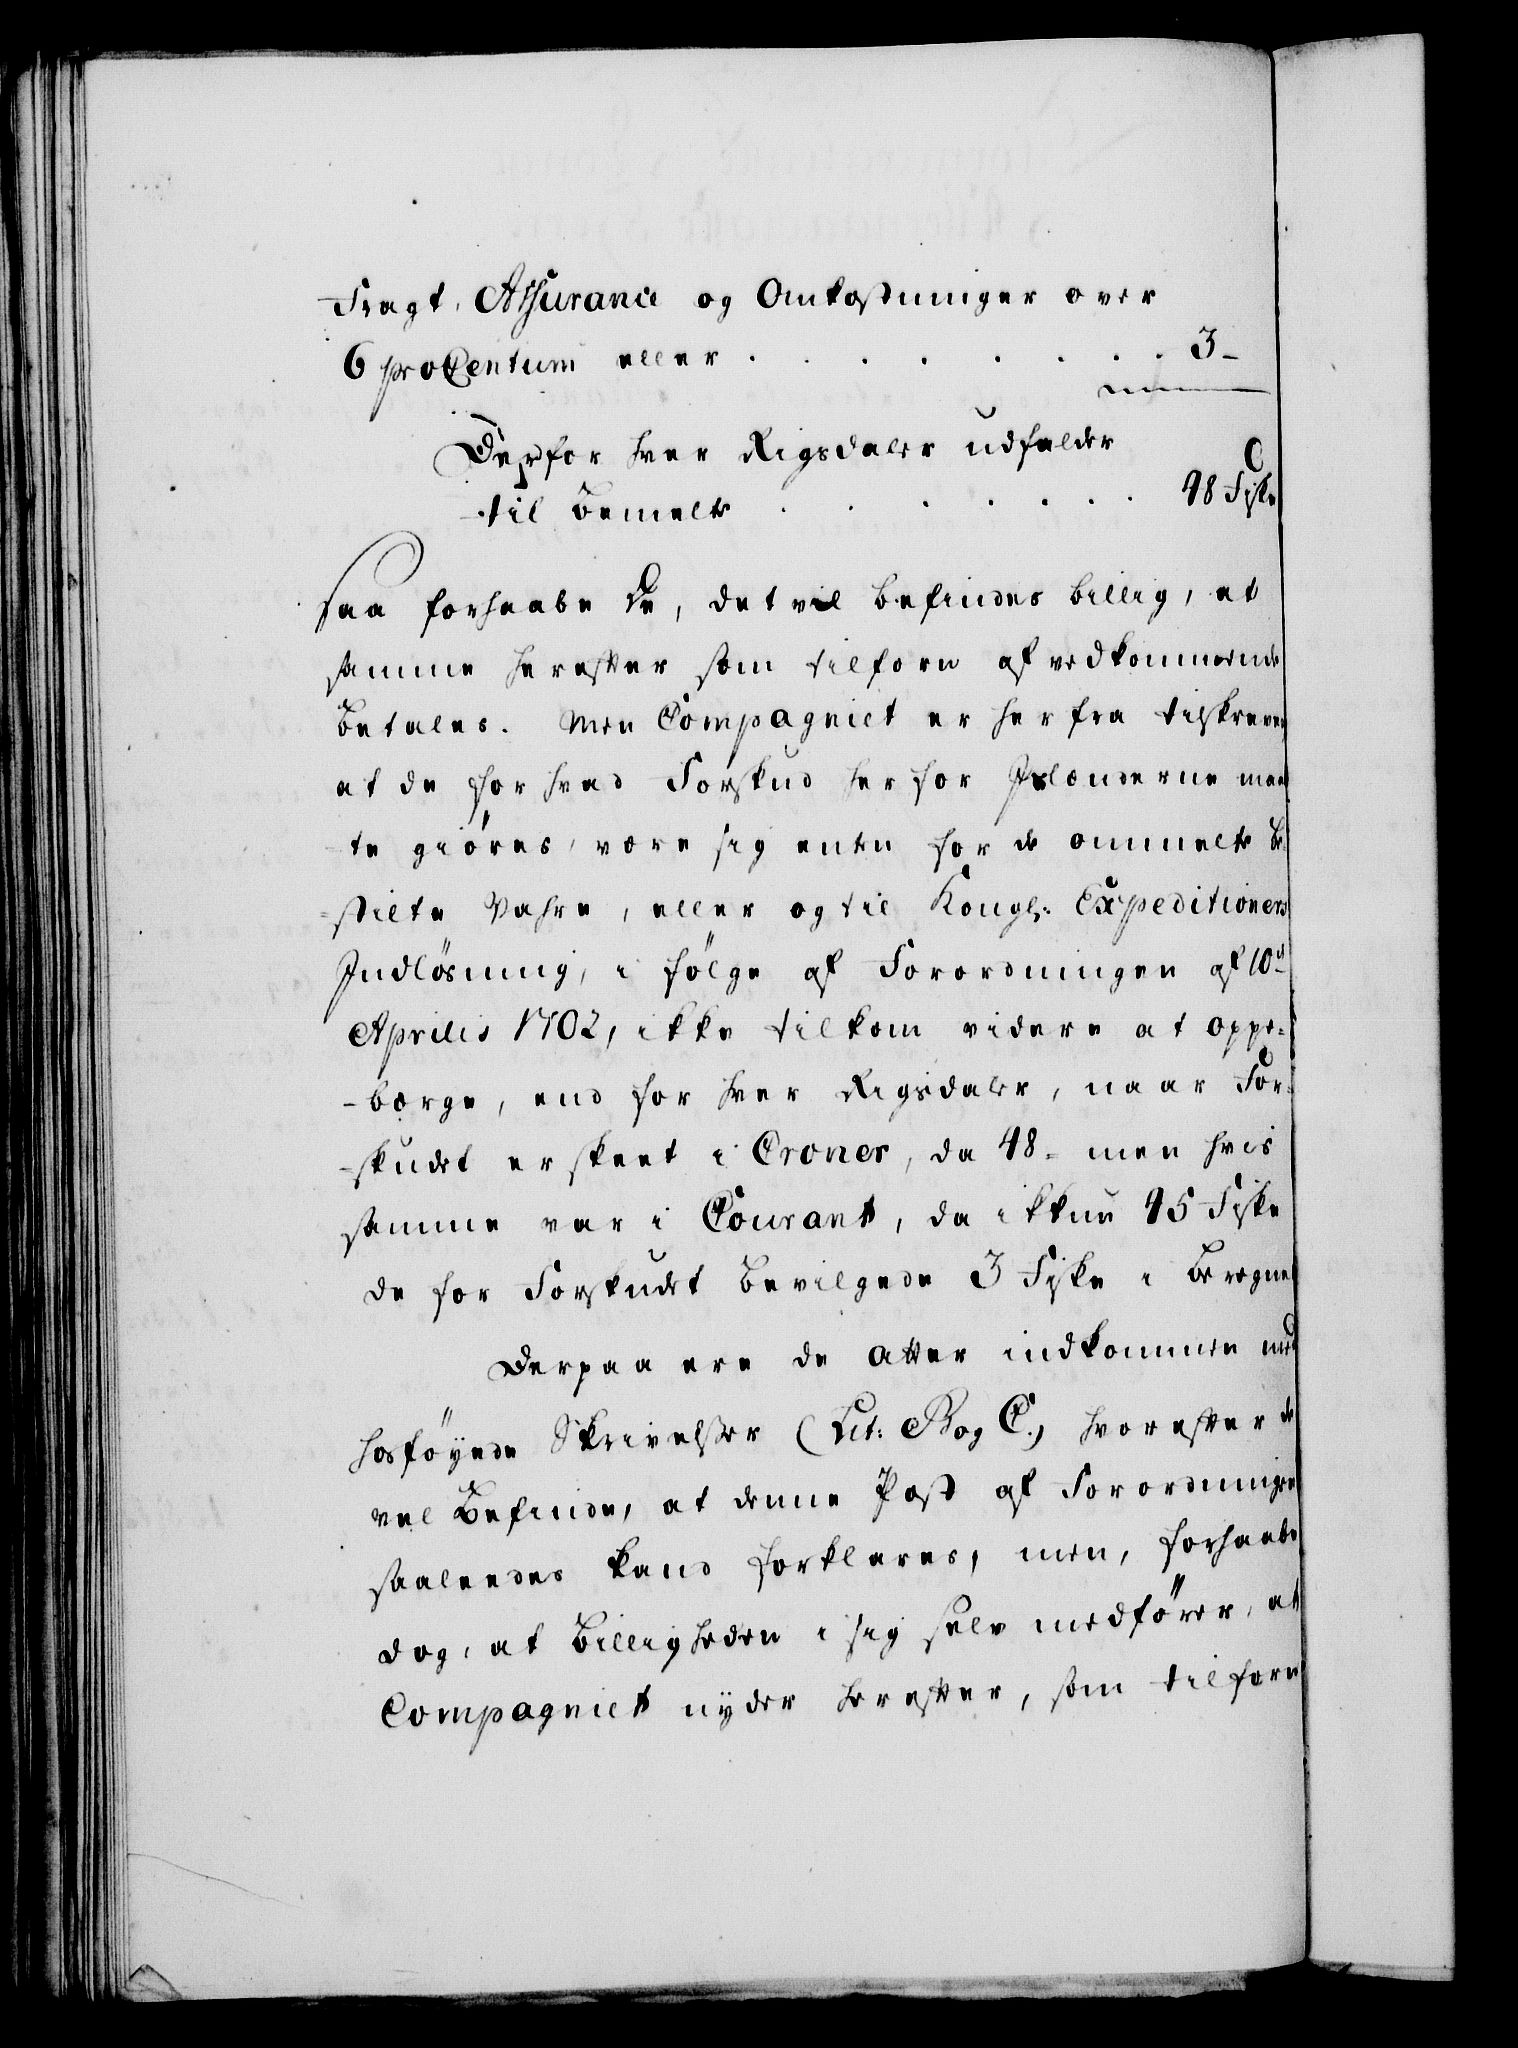 Fragt, Assurance og Omkostninger over
6 proCentum eller . . . . . . . . 3-
Derfor hver Rigsdaler udfalder
til bemelte . . . . . . 48 Fiske
saa forhaabe De, det vil befindes billig, at
samme herefter som tilforn af vedkommende
betales. Men Compagniet er herfra tilskreven,
at de for hvad Forskud her for Islænderne maa
te giöres, være sig enten for de ommelte be-
-stilte Vahre, eller og til Kongl: Expeditioners
Indlösning, i fölge af Forordningen af 10de
Aprilis 1702, ikke tilkom videre at oppe-
-bærge, end for hver Rigsdaler, naar For-
-skudet er skeet i Croner, da 48- men hvis
samme var i Courant, da ikkun 45 Fiske
de for Forskudet bevilgede 3 Fiske i beregnet
Derpaa ere de atter indkommen med
hosföyede Skrivelser (Lit: B og C.) hvorefter de
vel befinde, at denne Post af Forordningen
saaleedes kand forklares, men, forhaabe
dog, at billigheden i sig selv medförer, at
Compagniet nÿder herefter, som tilforn